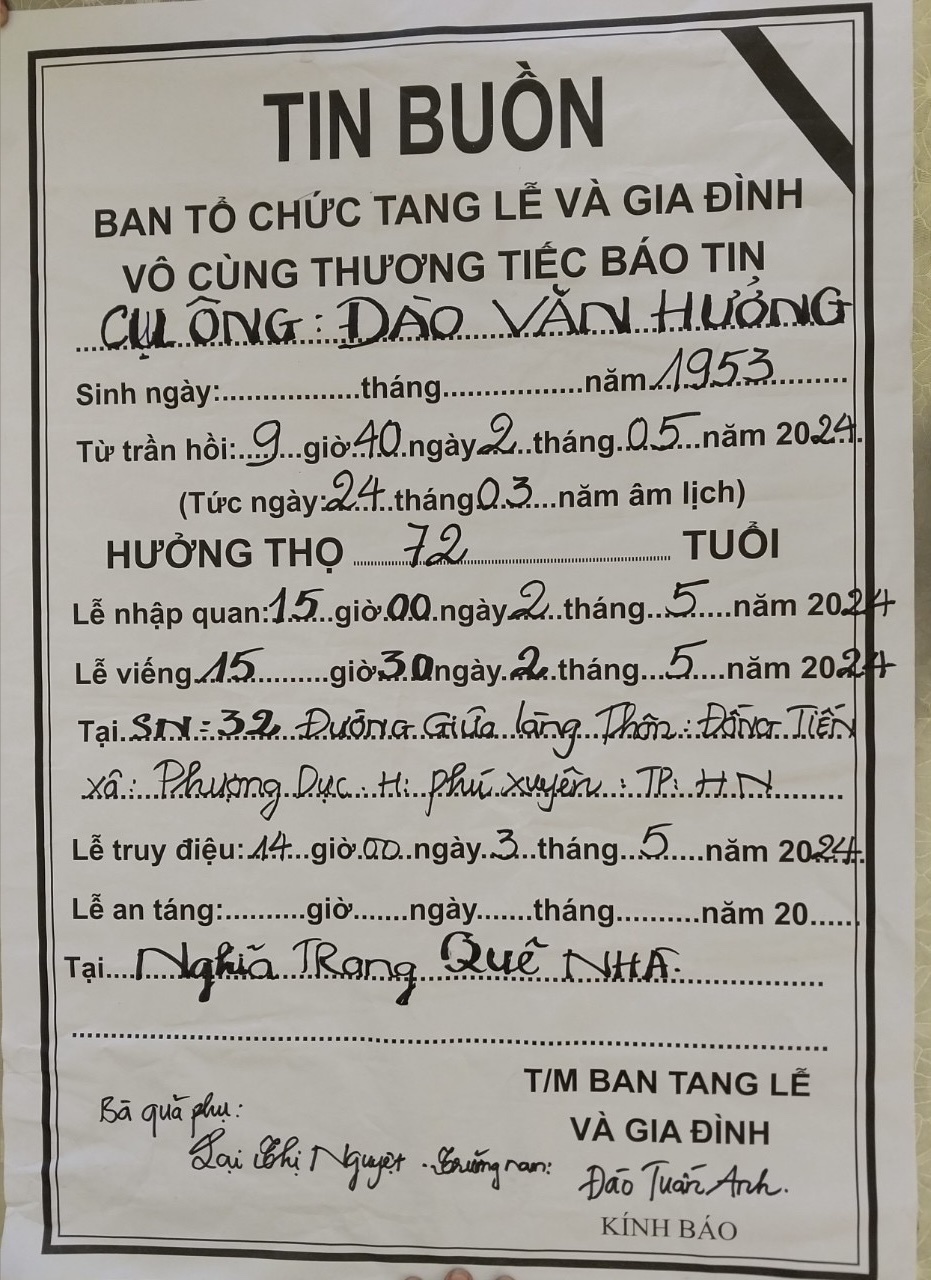 TIN BUỒN
BAN TỔ CHỨC TANG LỄ VÀ GIA ĐÌNH
VÔ CÙNG THƯƠNG TIẾC BÁO TIN
CỤ ÔNG: ĐÀO VĂN HƯỞNG
Sinh ngày:.................tháng.................năm 1953
Từ trần hồi: 9 giờ 40 ngày 2 tháng 05 năm 2024
(Tức ngày: 24 tháng 03 năm âm lịch)
HƯỞNG THỌ 72 TUỔI
Lễ nhập quan: 15 giờ 00 ngày 2 tháng 5 năm 2024
Lễ viếng 15 giờ 30 ngày 2 tháng 5 năm 2024
Tại SN: 32 Đường Giữa làng Thôn: ĐỒNG TIẾN
xã: Phượng Dực. H: phú xuyên: TP: HN
Lễ truy điệu: 14 giờ 00 ngày 3 tháng 5 năm 2024
Lễ an táng:..........giờ.......ngày.......tháng..........năm 20......
Tại Nghĩa TRang Quê NHÀ.
T/M BAN TANG LỄ
VÀ GIA ĐÌNH
Bà quả phụ:
Lại Thị Nguyệt. Trưởng nam: Đào Tuấn Anh.
KÍNH BÁO